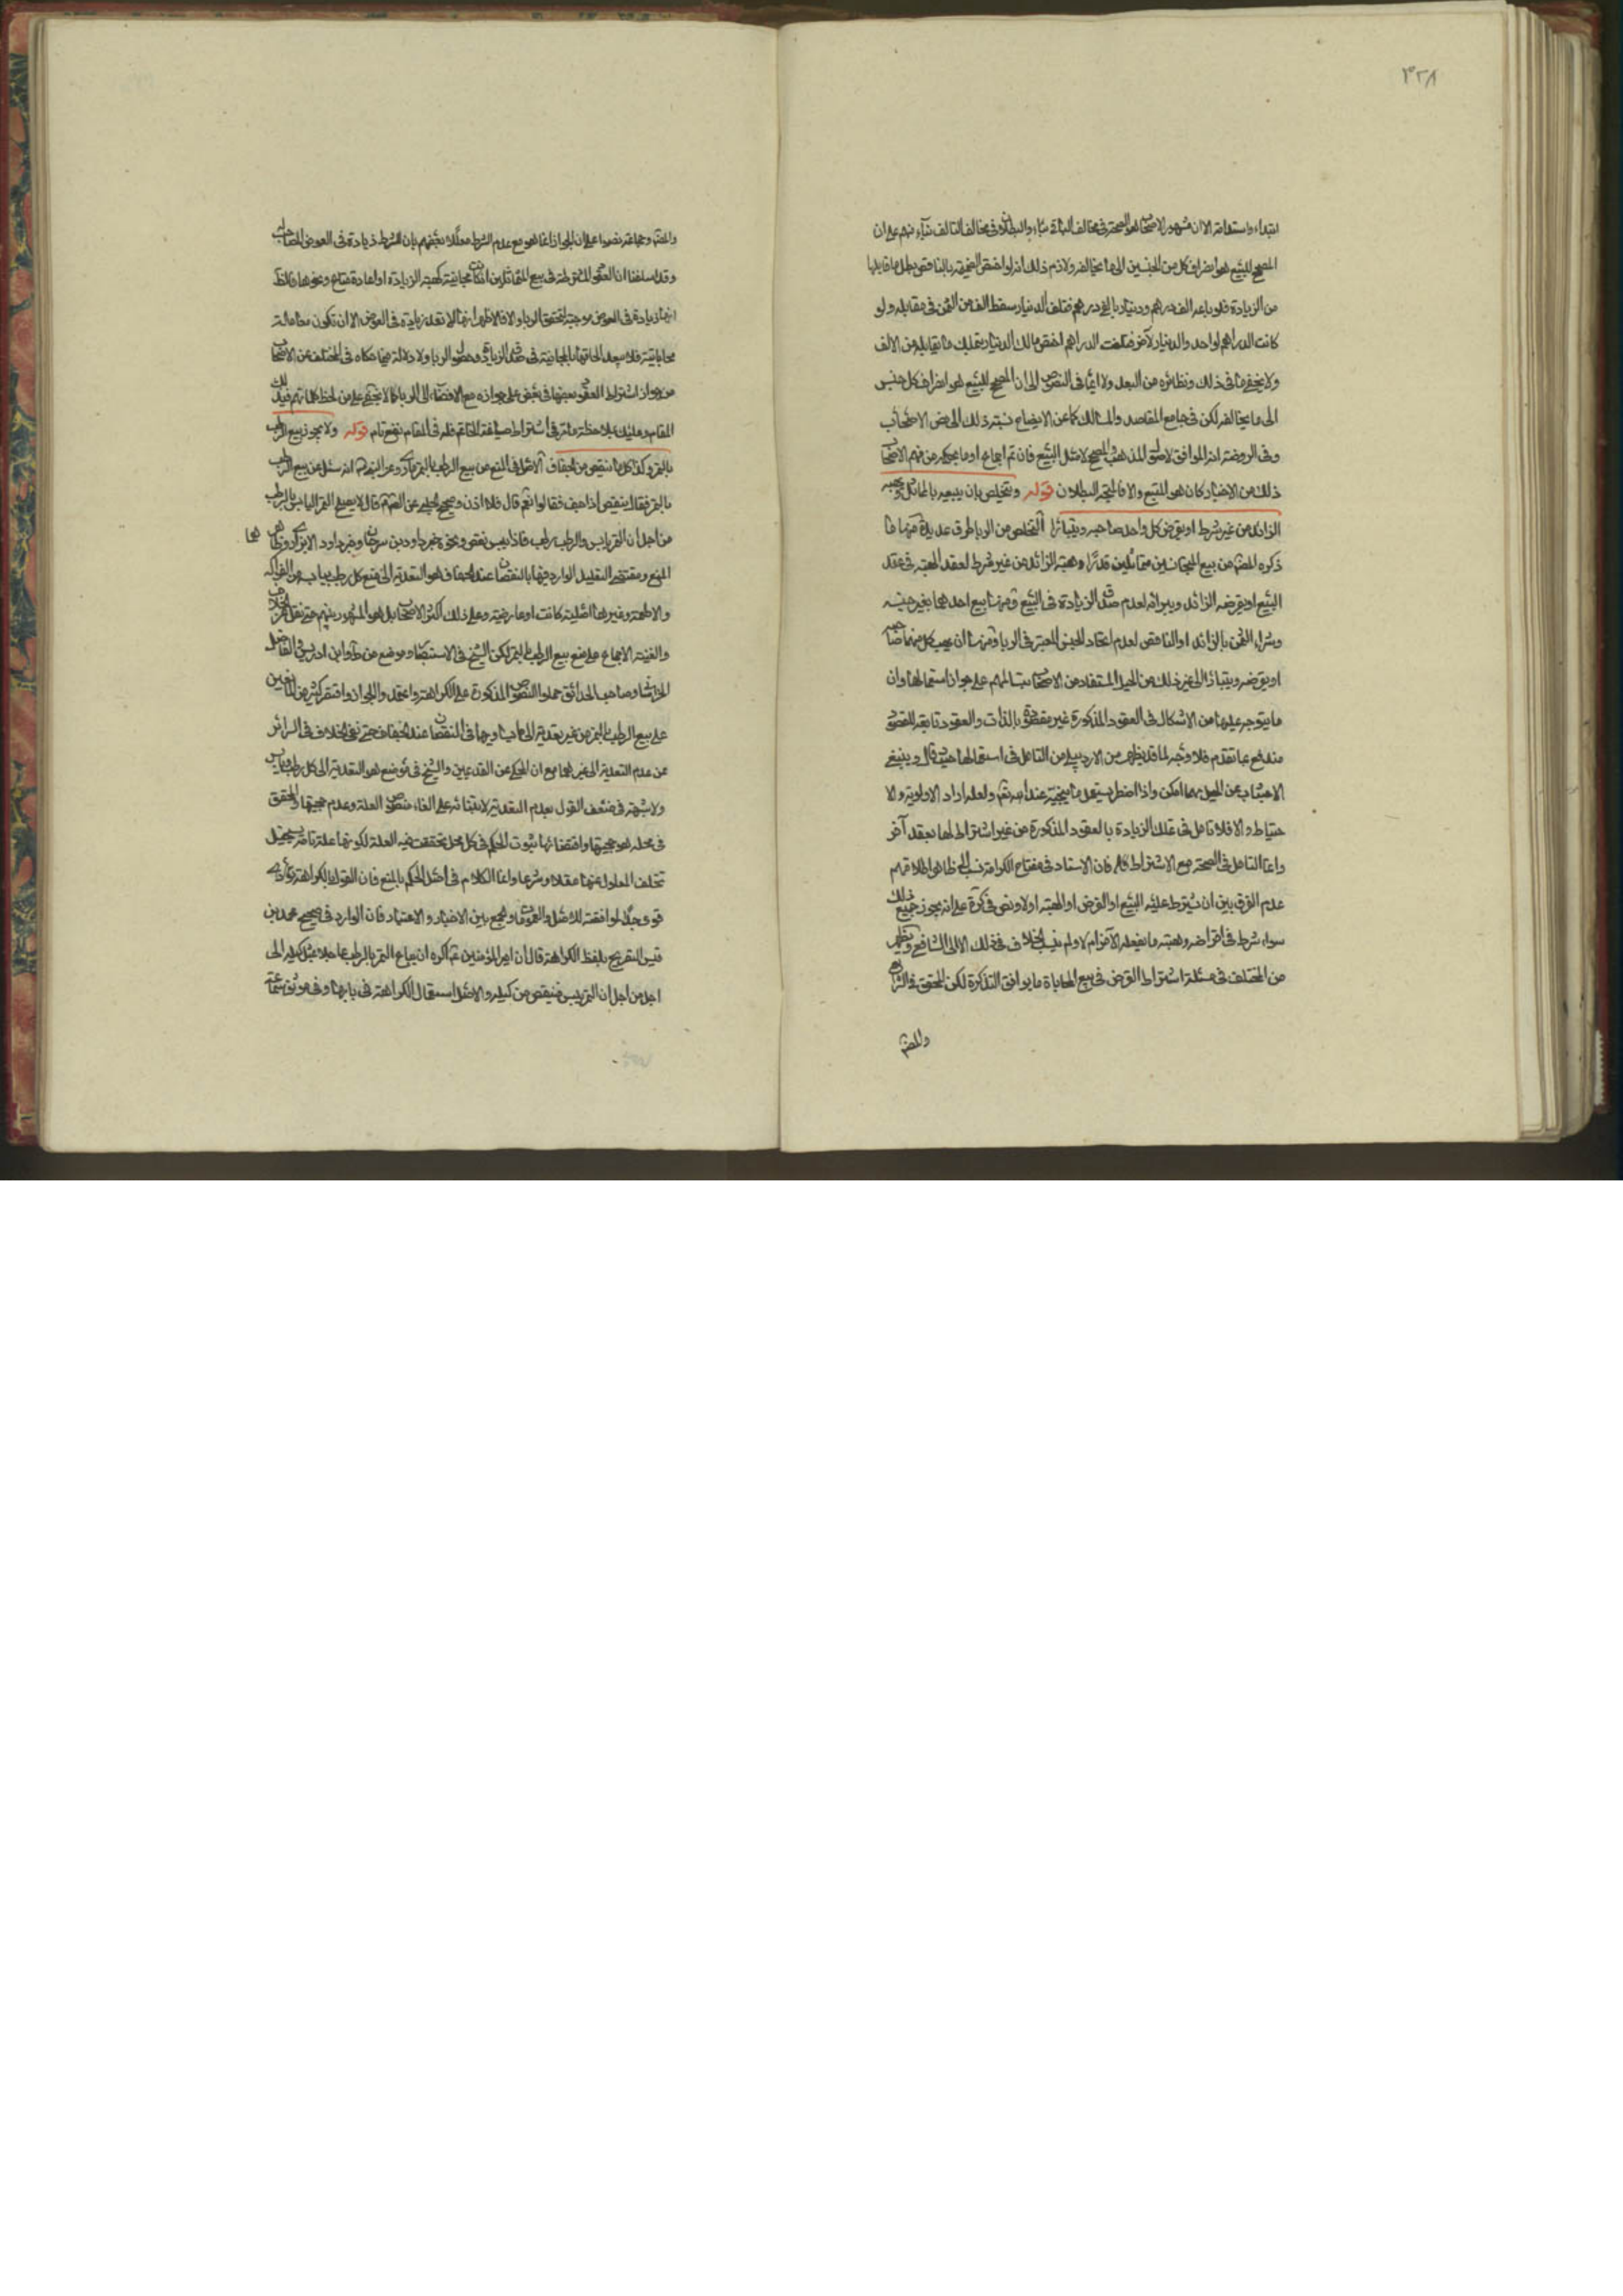 ٣٢٨
ابتداء واستدامة الا ان مشهور الاصحاب هو الصحة فى مخالف الثانى بناء والبطلان فى مخالف التالف بناء منهم على ان
المصحح للبيع هو انصراف كل من الجنسين الى ما يخالفه ولازم ذلك انه لو اختص القبض بالناقص بطل ما قابلها
من الزيادة فلو باعه الف درهم ودينار بالفى درهم فتلف الدينار سقط الف من الثمن فى مقابله ولو
كانت الدراهم لواحد والدينار لآخر فتلفت الدراهم اختص مالك الدينار بتملك ما يقابله من الالف
ولا يخفى ما فى ذلك ونظائره من البعد ولا ايماء فى النصوص الى ان المصحح للبيع هو انصراف كل جنس
الى ما يخالفه لكن فى جامع المقاصد والمسالك كما عن الايضاح نسبة ذلك الى محض الاصحاب
وفى الروضة انه الموافق لاصول المذهب والمصحح لاصل البيع فان تم اجماع او ما يحكم من فهم الاصحاب
ذلك من الاخبار كان هو المتبع والا فالمتجه البطلان قوله ويتخلص بان يبيعه بالمماثل ويهبه
الزائد من غير شرط او يقرض كل واحد صاحبه ويتبارئا التخلص من الربا طرق عديدة منها ما
ذكره المصنف من بيع المتجانسين متماثلين قدرا وهبة الزائد من غير شرط لعقد الهبة فى عقد
البيع او يقرضه الزائد ويبرئه لعدم صدق الزيادة فى البيع ومنها بيع احدهما بغير جنسه
وشراء الثمن بالزائد او الناقص لعدم اتحاد الجنس المعتبر فى الربا ومنها ان يهب كل منهما صاحبه
او يقرضه ويتبارئا الى غير ذلك من الحيل المستفاد من الاصحاب تسالمهم على جواز استعمالها وان
ما يتوجه عليها من الاشكال فى العقود المذكورة غير مقصودة بالذات والعقود تابعة للقصود
مندفع بما تقدم فلا وجه لما قد يظهر من الاردبيلى من التأمل فى استعمالها حيث قال وينبغى
الاجتناب عن الحيل مهما امكن واذا اضطر يستعمل ما ينجيه عند الله تعالى ولعله اراد الاولوية والا
حتياط والا فلا تأمل فى تملك الزيادة بالعقود المذكورة من غير اشتراط لها بعقد آخر
وانما التأمل فى الصحة مع الاشتراط فان الاستاد فى مفتاح الكرامة نسب الى ظاهر اطلاقهم
عدم الفرق بين ان يشترط عليه البيع او القرض او الهبة او لا ونص فى كرة على انه يجوز جميع ذلك
سواء شرط فى اقراضه وهبته ما يفعله الآخر ام لا ولم ينسب الخلاف فى ذلك الا الى الشافعى ويظهر
من المختلف فى مسئلة اشتراط القرض فى بيع المحاباة ما يوافق التذكرة لكن المحقق فى الشرائع
والمصنف
والمصنف وجماعة نصوا على ان الجواز انما هو مع عدم الشرط معللا بعضهم بان الشرط زيادة فى العوض المصاحب
وقد اسلفنا ان العقود المشترطة فى بيع المتماثلين اذا كانت مجانية كهبة الزيادة او اعادة متاع ونحوها فالظ
انها زيادة فى العوض موجبة لتحقق الربا والا فالاظهر انها لا تعد زيادة فى العوض الا ان تكون معاملة
محاباتية فلا يبعد الحاقها بالمجانية فى صدق الزيادة وحصول الربا ولا دلالة فيما حكاه فى المختلف عن الاصحاب
من جواز اشتراط العقود بعضها فى بعض على جوازه مع الافضاء الى الربا كما لا يخفى على من لحظ كلماتهم فى تلك
المقام وعليك بملاحظة ما مر فى اشتراط صياغة الخاتم فله فى المقام نفع تام قوله ولا يجوز بيع الرطب
بالتمر وكذا كل ما ينقص من الجفاف الاصل فى المنع من بيع الرطب بالتمر ما روى عن النبى ص انه سئل عن بيع الرطب
بالتمر فقال اينقص اذا جف فقالوا نعم قال فلا اذن وصحيح الحلبى عن الصادق قال لا يصلح التمر اليابس بالرطب
من اجل ان التمر يابس والرطب رطب فاذا يبس نقص ونحوه خبر داود بن سرحان وخبر داود الابزارى وظاهرها
المنع ومقتضى التعليل الوارد فيها بالنقصان عند الجفاف هو التعدية الى منع كل رطب بيابسه من الفواكه
والاطعمة وغيرهما اصلية كانت او عارضية وعلى ذلك اكثر الاصحاب بل هو المشهور بينهم حتى نقل عن الخلاف
والغنية الاجماع على منع بيع الرطب بالتمر لكن الشيخ فى الاستبصار وموضع من ط وابن ادريس والفاضل
الخراسانى وصاحب الحدائق حملوا النصوص المذكورة على الكراهة واعتمدوا الجواز واقتصر كثير من المانعين
على بيع الرطب بالتمر من غير تعدية الى ما يساويهما فى النقصان عند الجفاف حتى نفى الخلاف فى السرائر
عن عدم التعدية الى غيرهما مع ان المحكى عن القديمين والشيخ فى موضع هو التعدية الى كل رطب ويابس
ولا شبهة فى ضعف القول بعدم التعدية لابتنائه على الغاء منصوص العلة وعدم حجيتها والمحقق
فى محله هو حجيتها واقتضائها ثبوت الحكم فى كل محل تحققت فيه العلة لكونها علة تامة يستحيل
تخلف المعلول عنها عقلا وشرعا وانما الكلام فى اصل الحكم بالمنع فان القول بالكراهة
قوى جدا لموافقته للاصل والعمومات والجمع بين الاخبار والاعتماد فان الوارد فى صحيح محمد بن
قيس التصريح بلفظ الكراهة قال ان امير المؤمنين ع كره ان يباع التمر بالرطب عاجلا بمثل كيله الى
اجل من اجل ان التمر ييبس فينقص من كيله والاصل استعمال الكراهة فى بابها وفى موثق سماعة